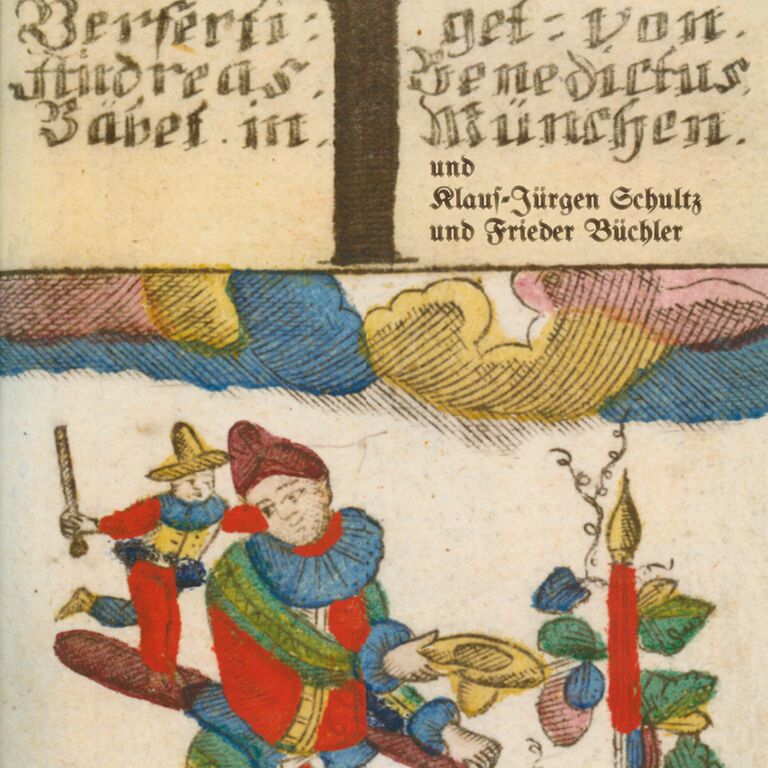 Verferti: get: von.
Andreas. Benedictus.
Göbel. in. München.
und
Klaus-Jürgen Schultz
und Frieder Büchler